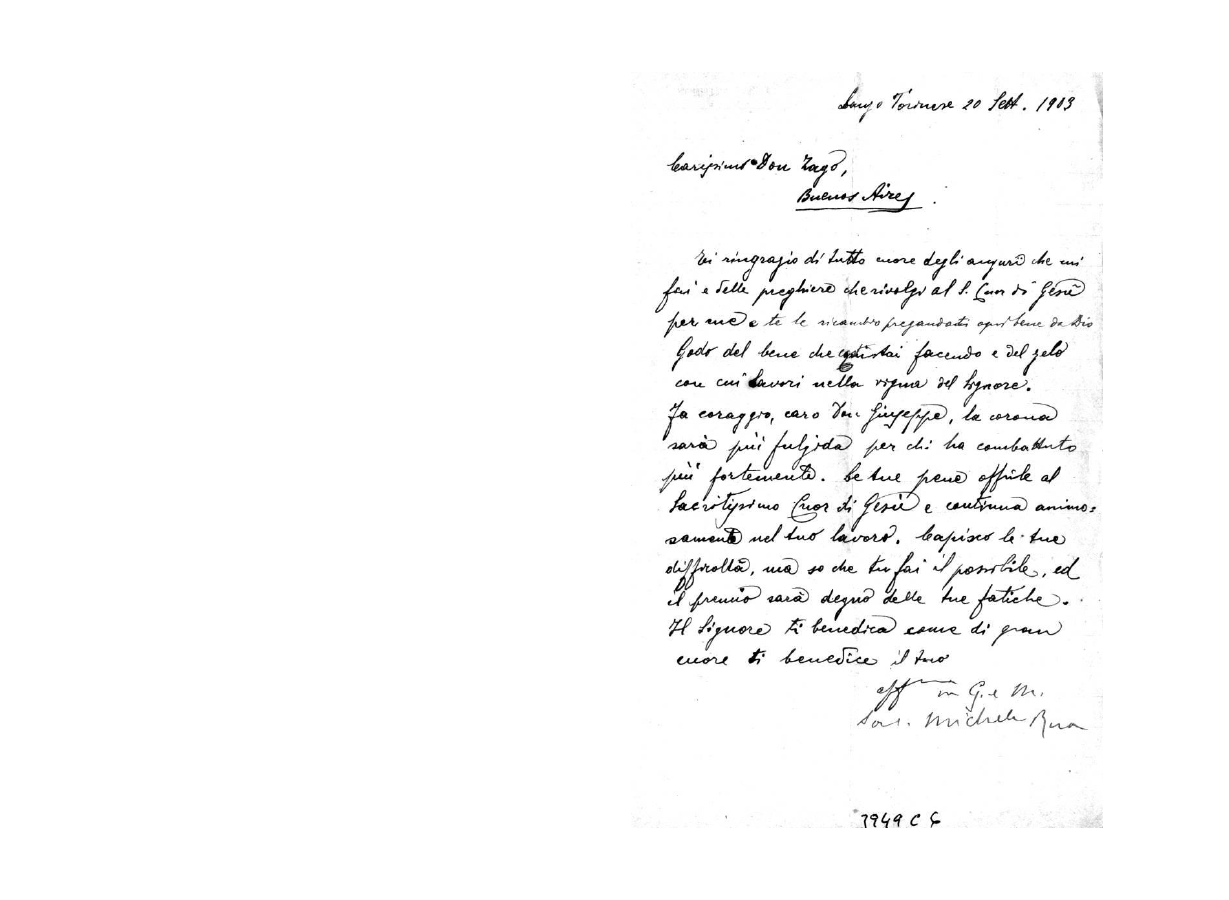 Lanzo Torinese 20 Sett. 1903
Carissimo Don Zago,
Buenos Aires.
Ti ringrazio di tutto cuore degli augurî che mi
fai e delle preghiere che rivolgi al S. Cuor di Gesù
per me e te le ricambio pregandoti ogni bene da Dio
Godo del bene che stai facendo e del zelo
con cui lavori nella vigna del Signore.
Fa coraggio, caro Don Giuseppe, la corona
sarà più fulgida per chi ha combattuto
più fortemente. Le tue pene offrile al
Sacratissimo Cuor di Gesù e continua animo=
samente nel tuo lavoro. Capisco le tue
difficoltà, ma so che tu fai il possibile, ed
il premio sarà degno delle tue fatiche.
Il Signore ti benedica come di gran
cuore ti benedice il tuo
aff.mo in G. e M.
Sac. Michele Rua
3949 C 6